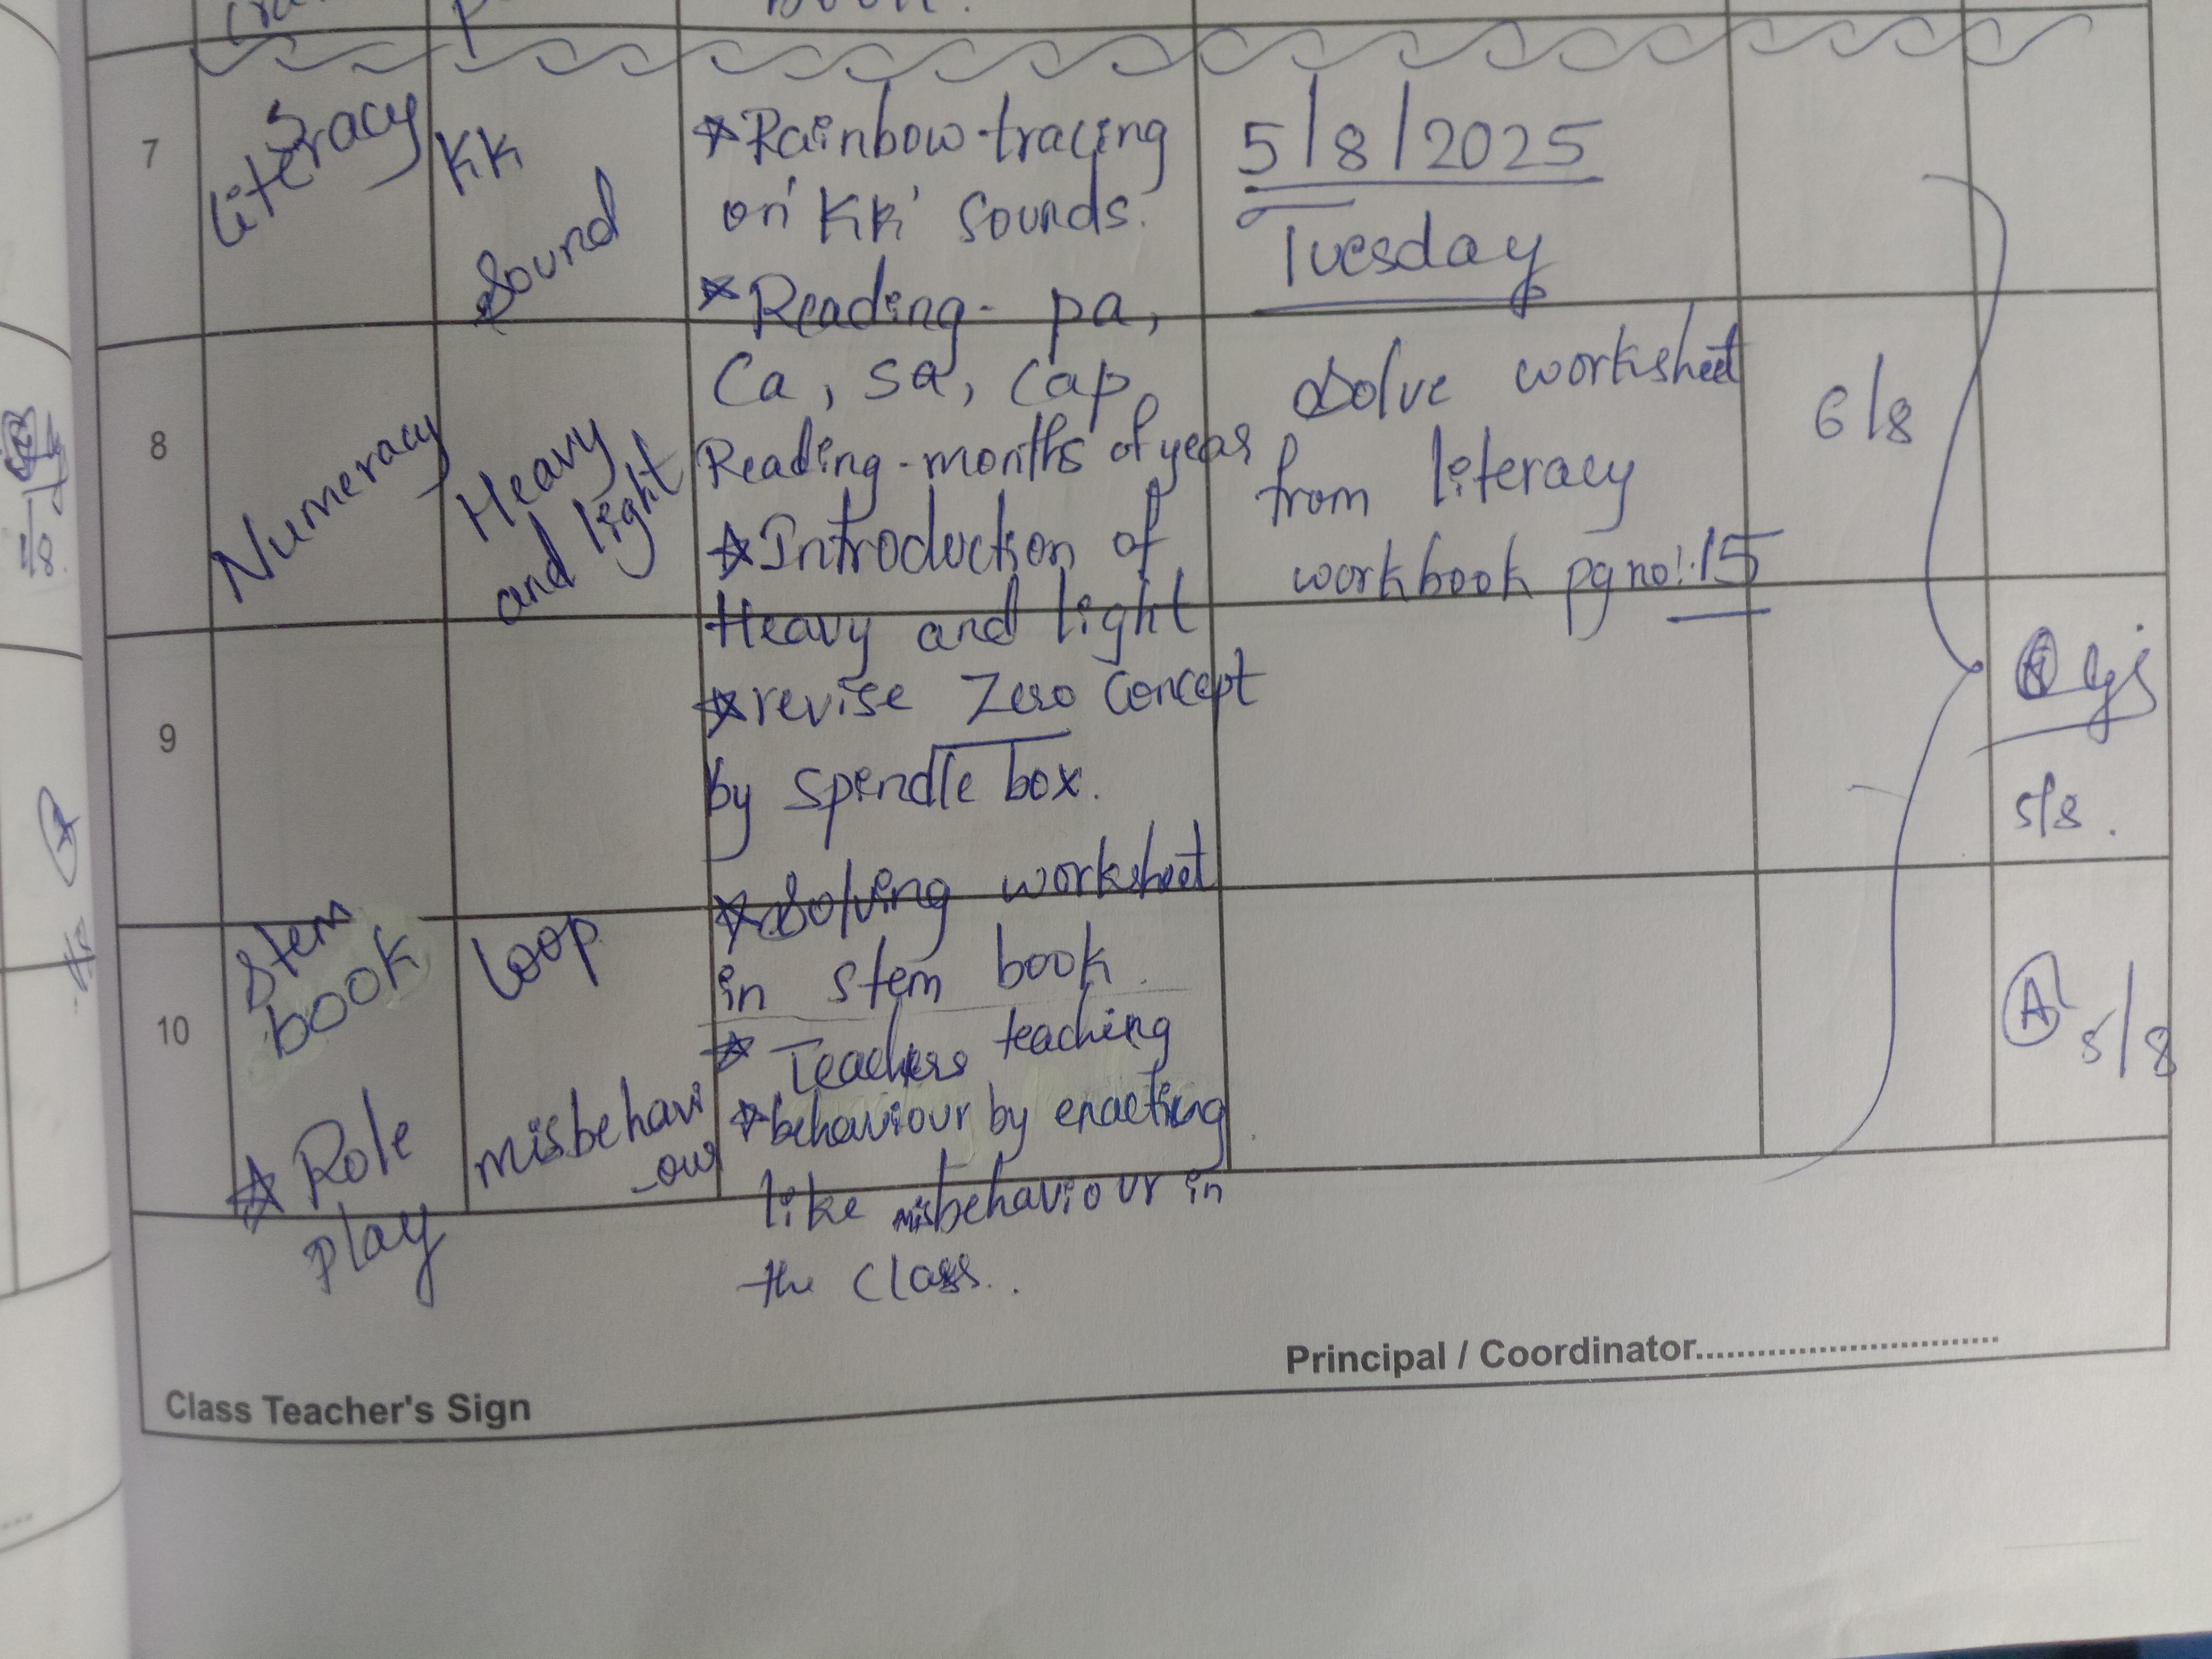 7
Literacy
KK
Sound
☆ Rainbow tracing
on 'KK' Sounds.
☆ Reading - pa,
Ca, sa, Cap
Reading - months of year
5/8/2025
Tuesday
8
Numeracy
Heavy
and light
☆ Introduction of
Heavy and light
☆ revise Zero Concept
by spindle box.
Solve worksheet
from literacy
workbook pg no:- 15
6/8
9
5/8.
☆ Solving worksheet
in stem book
10
Stem
book
Loop
☆ Teachers teaching
☆ behaviour by enacting
like misbehaviour in
the class..
☆ Role
play
misbehavi
-our
A 5/8
Principal / Coordinator..............................
Class Teacher's Sign